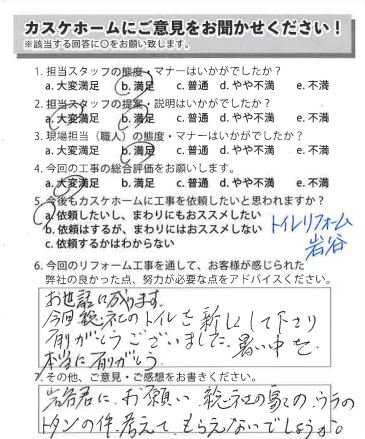 カスケホームにご意見をお聞かせください！
※該当する回答に○をお願い致します。
1. 担当スタッフの態度・マナーはいかがでしたか？
a. 大変満足 b. 満足 c. 普通 d. やや不満 e. 不満
2. 担当スタッフの提案・説明はいかがでしたか？
a. 大変満足 b. 満足 c. 普通 d. やや不満 e. 不満
3. 現場担当（職人）の態度・マナーはいかがでしたか？
a. 大変満足 b. 満足 c. 普通 d. やや不満 e. 不満
4. 今回の工事の総合評価をお願いします。
a. 大変満足 b. 満足 c. 普通 d. やや不満 e. 不満
5. 今後もカスケホームに工事を依頼したいと思われますか？
a. 依頼したいし、まわりにもおススメしたい
b. 依頼はするが、まわりにはおススメしない
c. 依頼するかはわからない
トイレリフォーム
岩谷
6. 今回のリフォーム工事を通して、お客様が感じられた
弊社の良かった点、努力が必要な点をアドバイスください。
お世話に成ります。
今回総社のトイレを新しくして下さり
有がとうございました。暑い中を
本当に有がとう。
7. その他、ご意見・ご感想をお書きください。
岩谷君に、お願い 総社の家のウラの
トタンの件、考えてもらえないでしょうか。